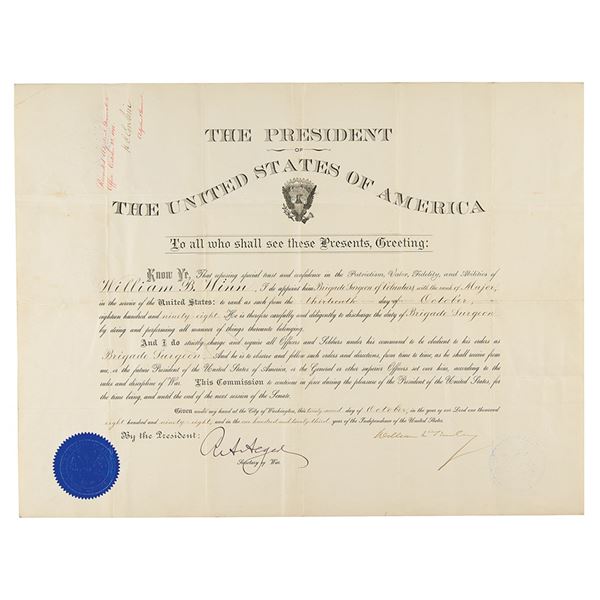 THE PRESIDENT
OF
THE UNITED STATES OF AMERICA
To all who shall see these Presents, Greeting:
Know Ye, That reposing special trust and confidence in the Patriotism, Valor, Fidelity, and Abilities of
William B. Winn, I do appoint him Brigade Surgeon of Volunteers with the rank of Major,
in the service of the United States: to rank as such from the thirteenth day of October,
eighteen hundred and ninety eight. He is therefore carefully and diligently to discharge the duty of Brigade Surgeon
by doing and performing all manner of things thereunto belonging.
And I do strictly charge and require all Officers and Soldiers under his command to be obedient to his orders as
Brigade Surgeon. And he is to observe and follow such orders and directions, from time to time, as he shall receive from
me, or the future President of the United States of America, or the General or other superior Officers set over him, according to the
rules and discipline of War. This Commission to continue in force during the pleasure of the President of the United States, for
the time being, and until the end of the next session of the Senate.
Given under my hand at the City of Washington, this twenty second day of October, in the year of our Lord one thousand
eight hundred and ninety eight, and in the one hundred and twenty third year of the Independence of the United States.
By the President:
William McKinley
R. A. Alger
Secretary of War.